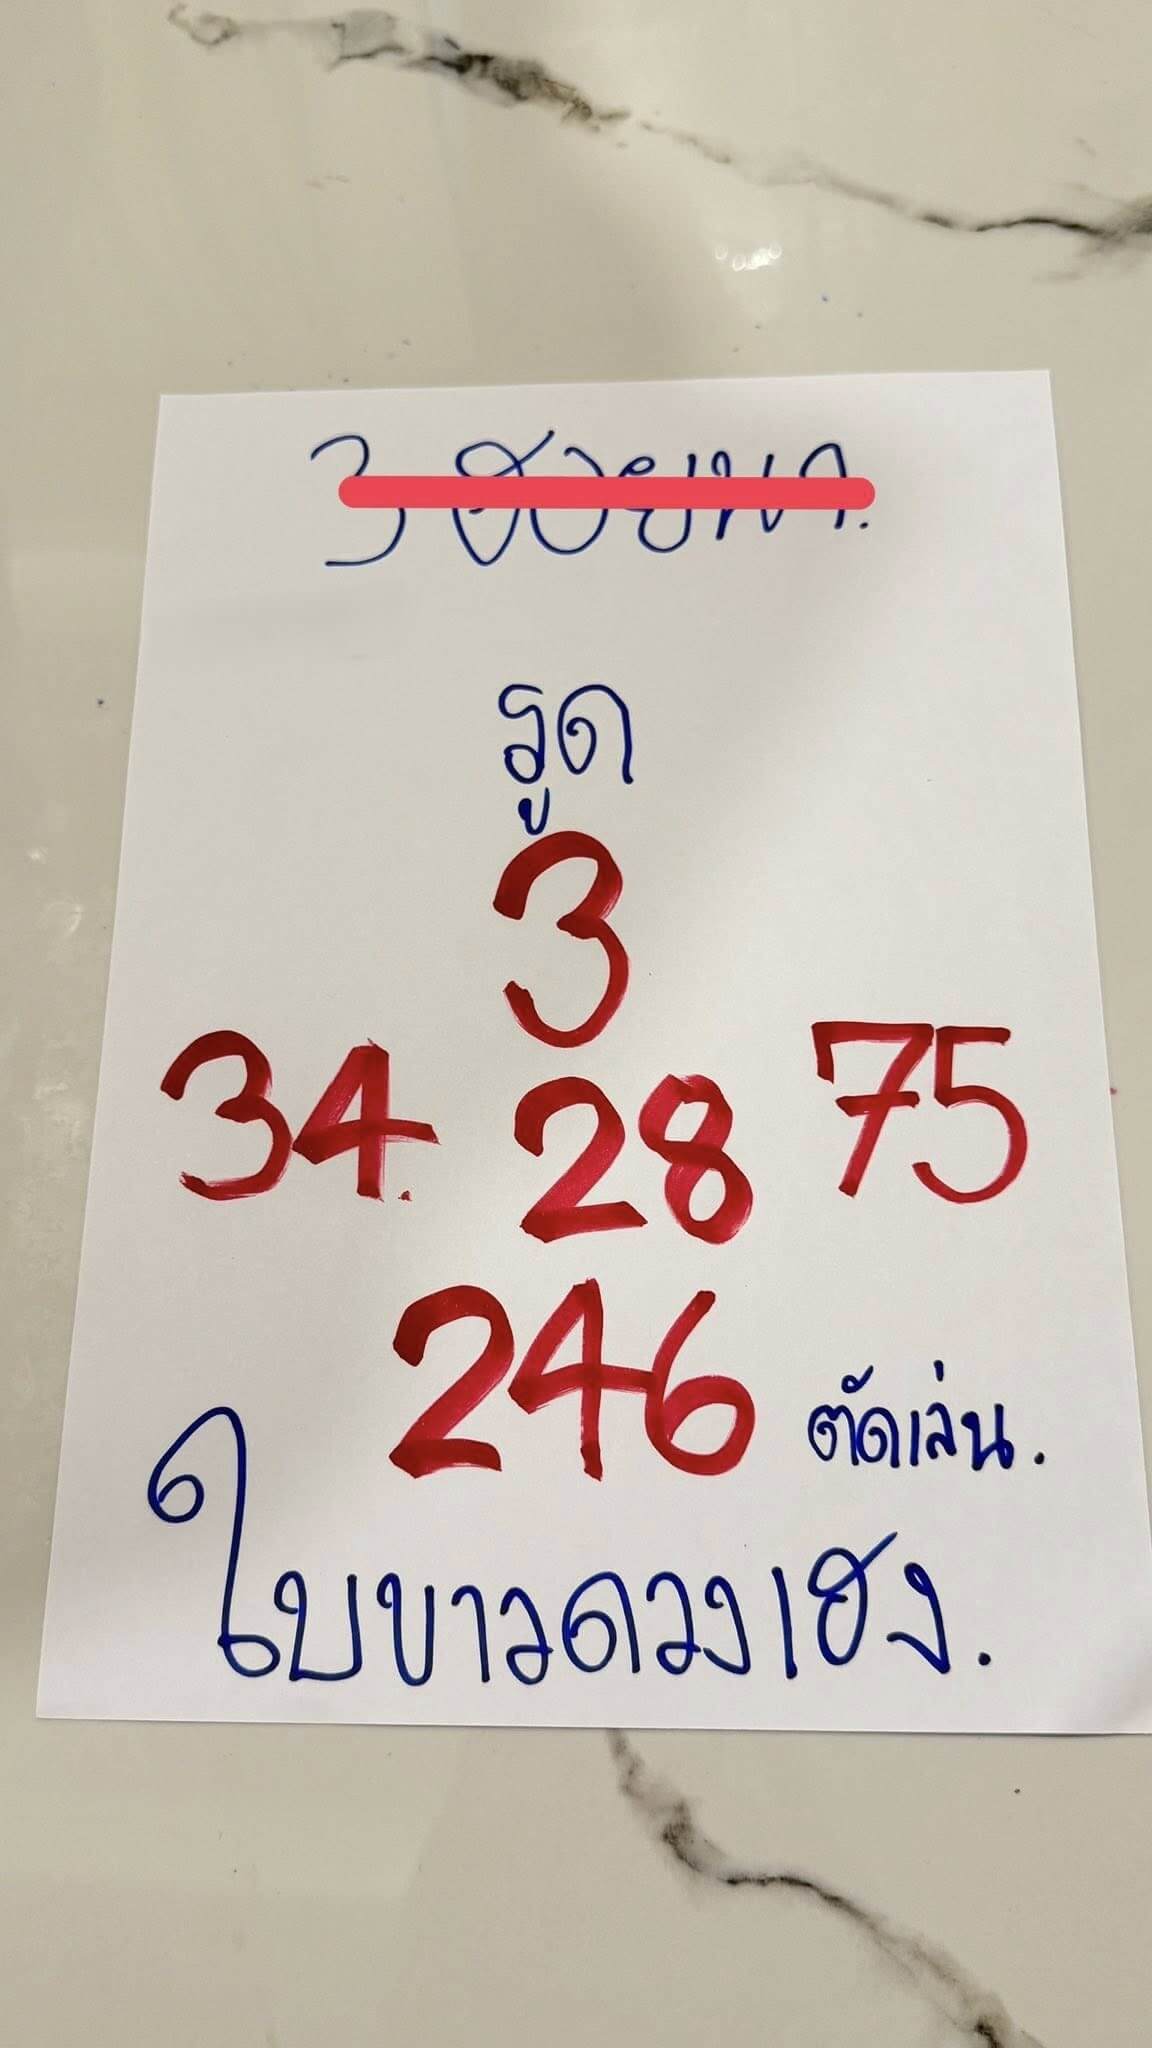 รูด
3
34. 28 75
246 ตัดเล่น.
ใบขาวดวงเฮง.